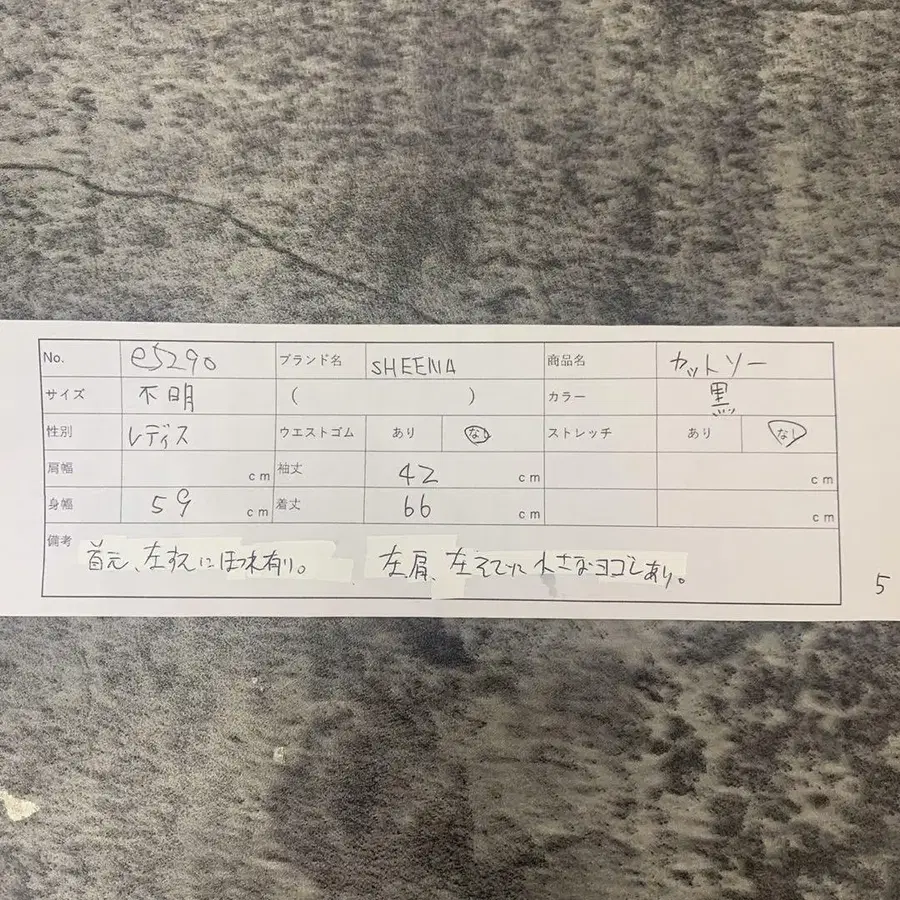 No. e5290 ブランド名 SHEENA 商品名 カットソー
サイズ 不明 ( ) カラー 黒
性別 レディス ウエストゴム あり なし ストレッチ あり なし
肩幅 cm 袖丈 42 cm cm
身幅 59 cm 着丈 66 cm cm
備考 首元、左すそにほつれ有り。 左肩、左そでに小さなヨゴレあり。
5